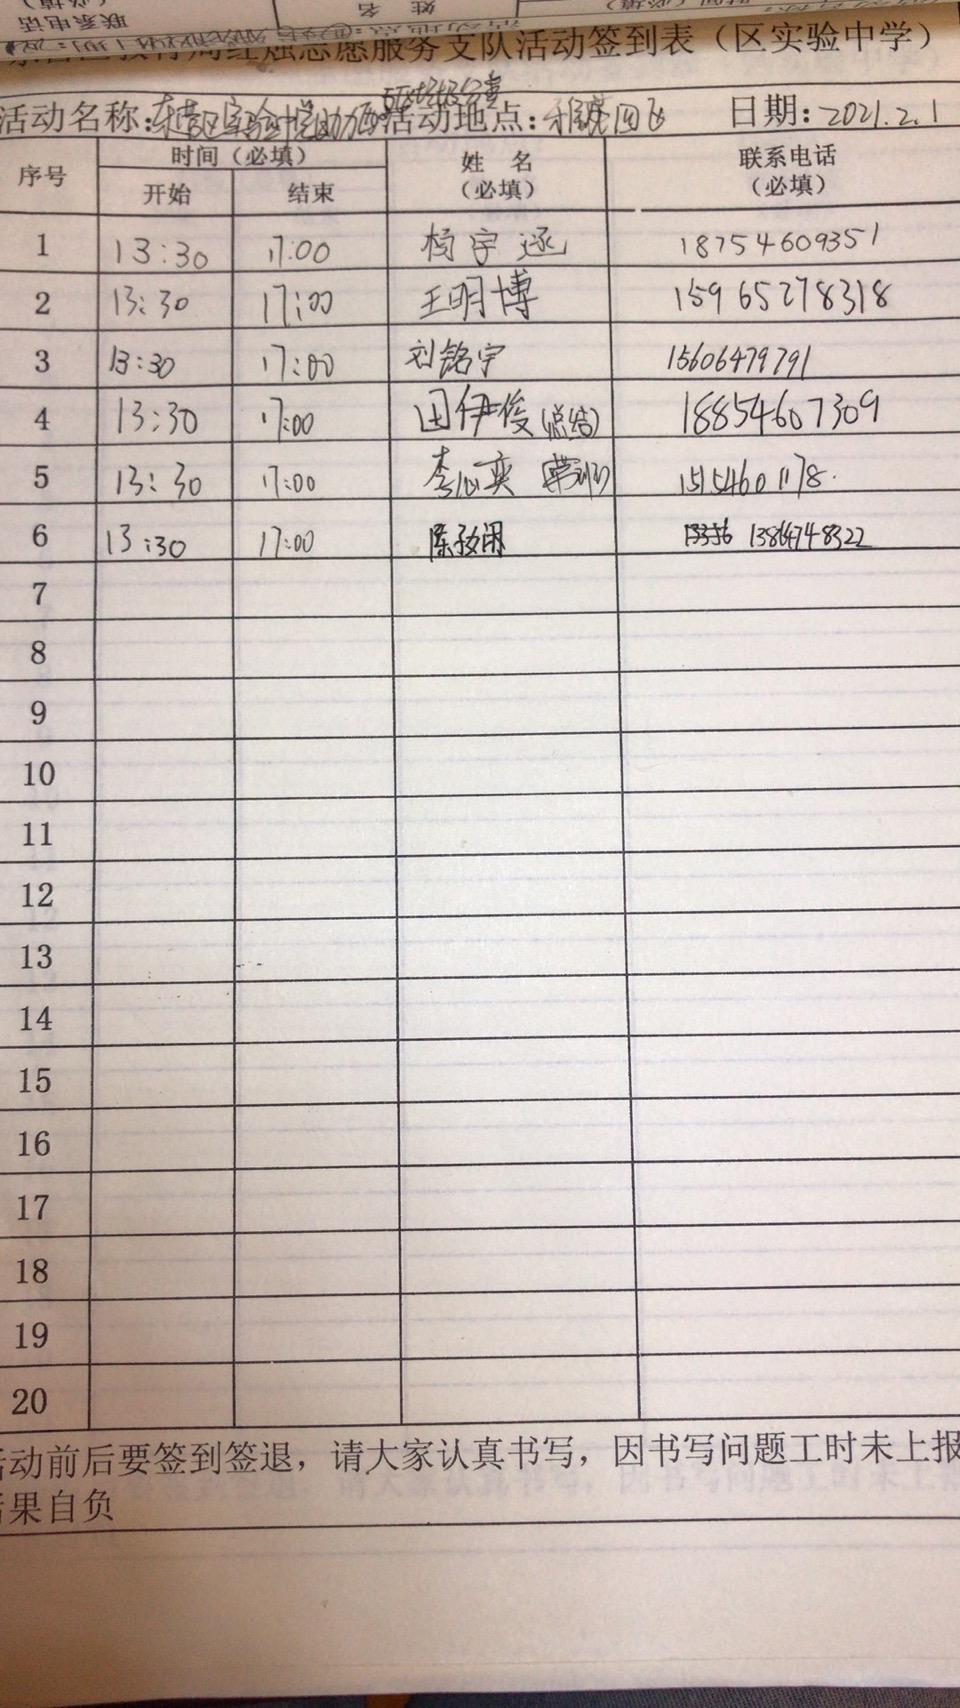 红烛志愿服务支队活动签到表（区实验中学）
活动名称：东营区实验中学助力 活动地点： 日期：2021.2.1
序号 时间（必填） 姓 名（必填） 联系电话（必填）
开始 结束
1 13:30 17:00 杨宇 18754609351
2 13:30 17:00 王明博 15965278318
3 13:30 17:00 刘铭宇 15606479791
4 13:30 17:00 田伊俊(总结) 18854607309
5 13:30 17:00 李心奕 15154601178
6 13:30 17:00 陈 13864748322
7
8
9
10
11
12
13
14
15
16
17
18
19
20
动前后要签到签退，请大家认真书写，因书写问题工时未上报
果自负